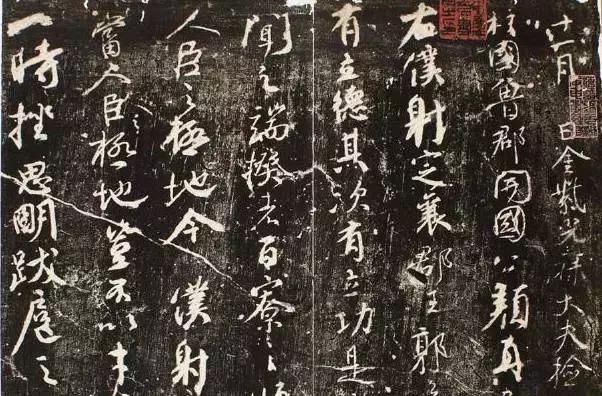 十一月 日金紫光祿大夫檢
柱國魯郡開國公顏真
右僕射定襄郡王郭
有立德其次有立功是
聞之端揆者百寮之
人臣之極地今僕射
當人臣之極地豈不以才
一時挫思明跋扈之